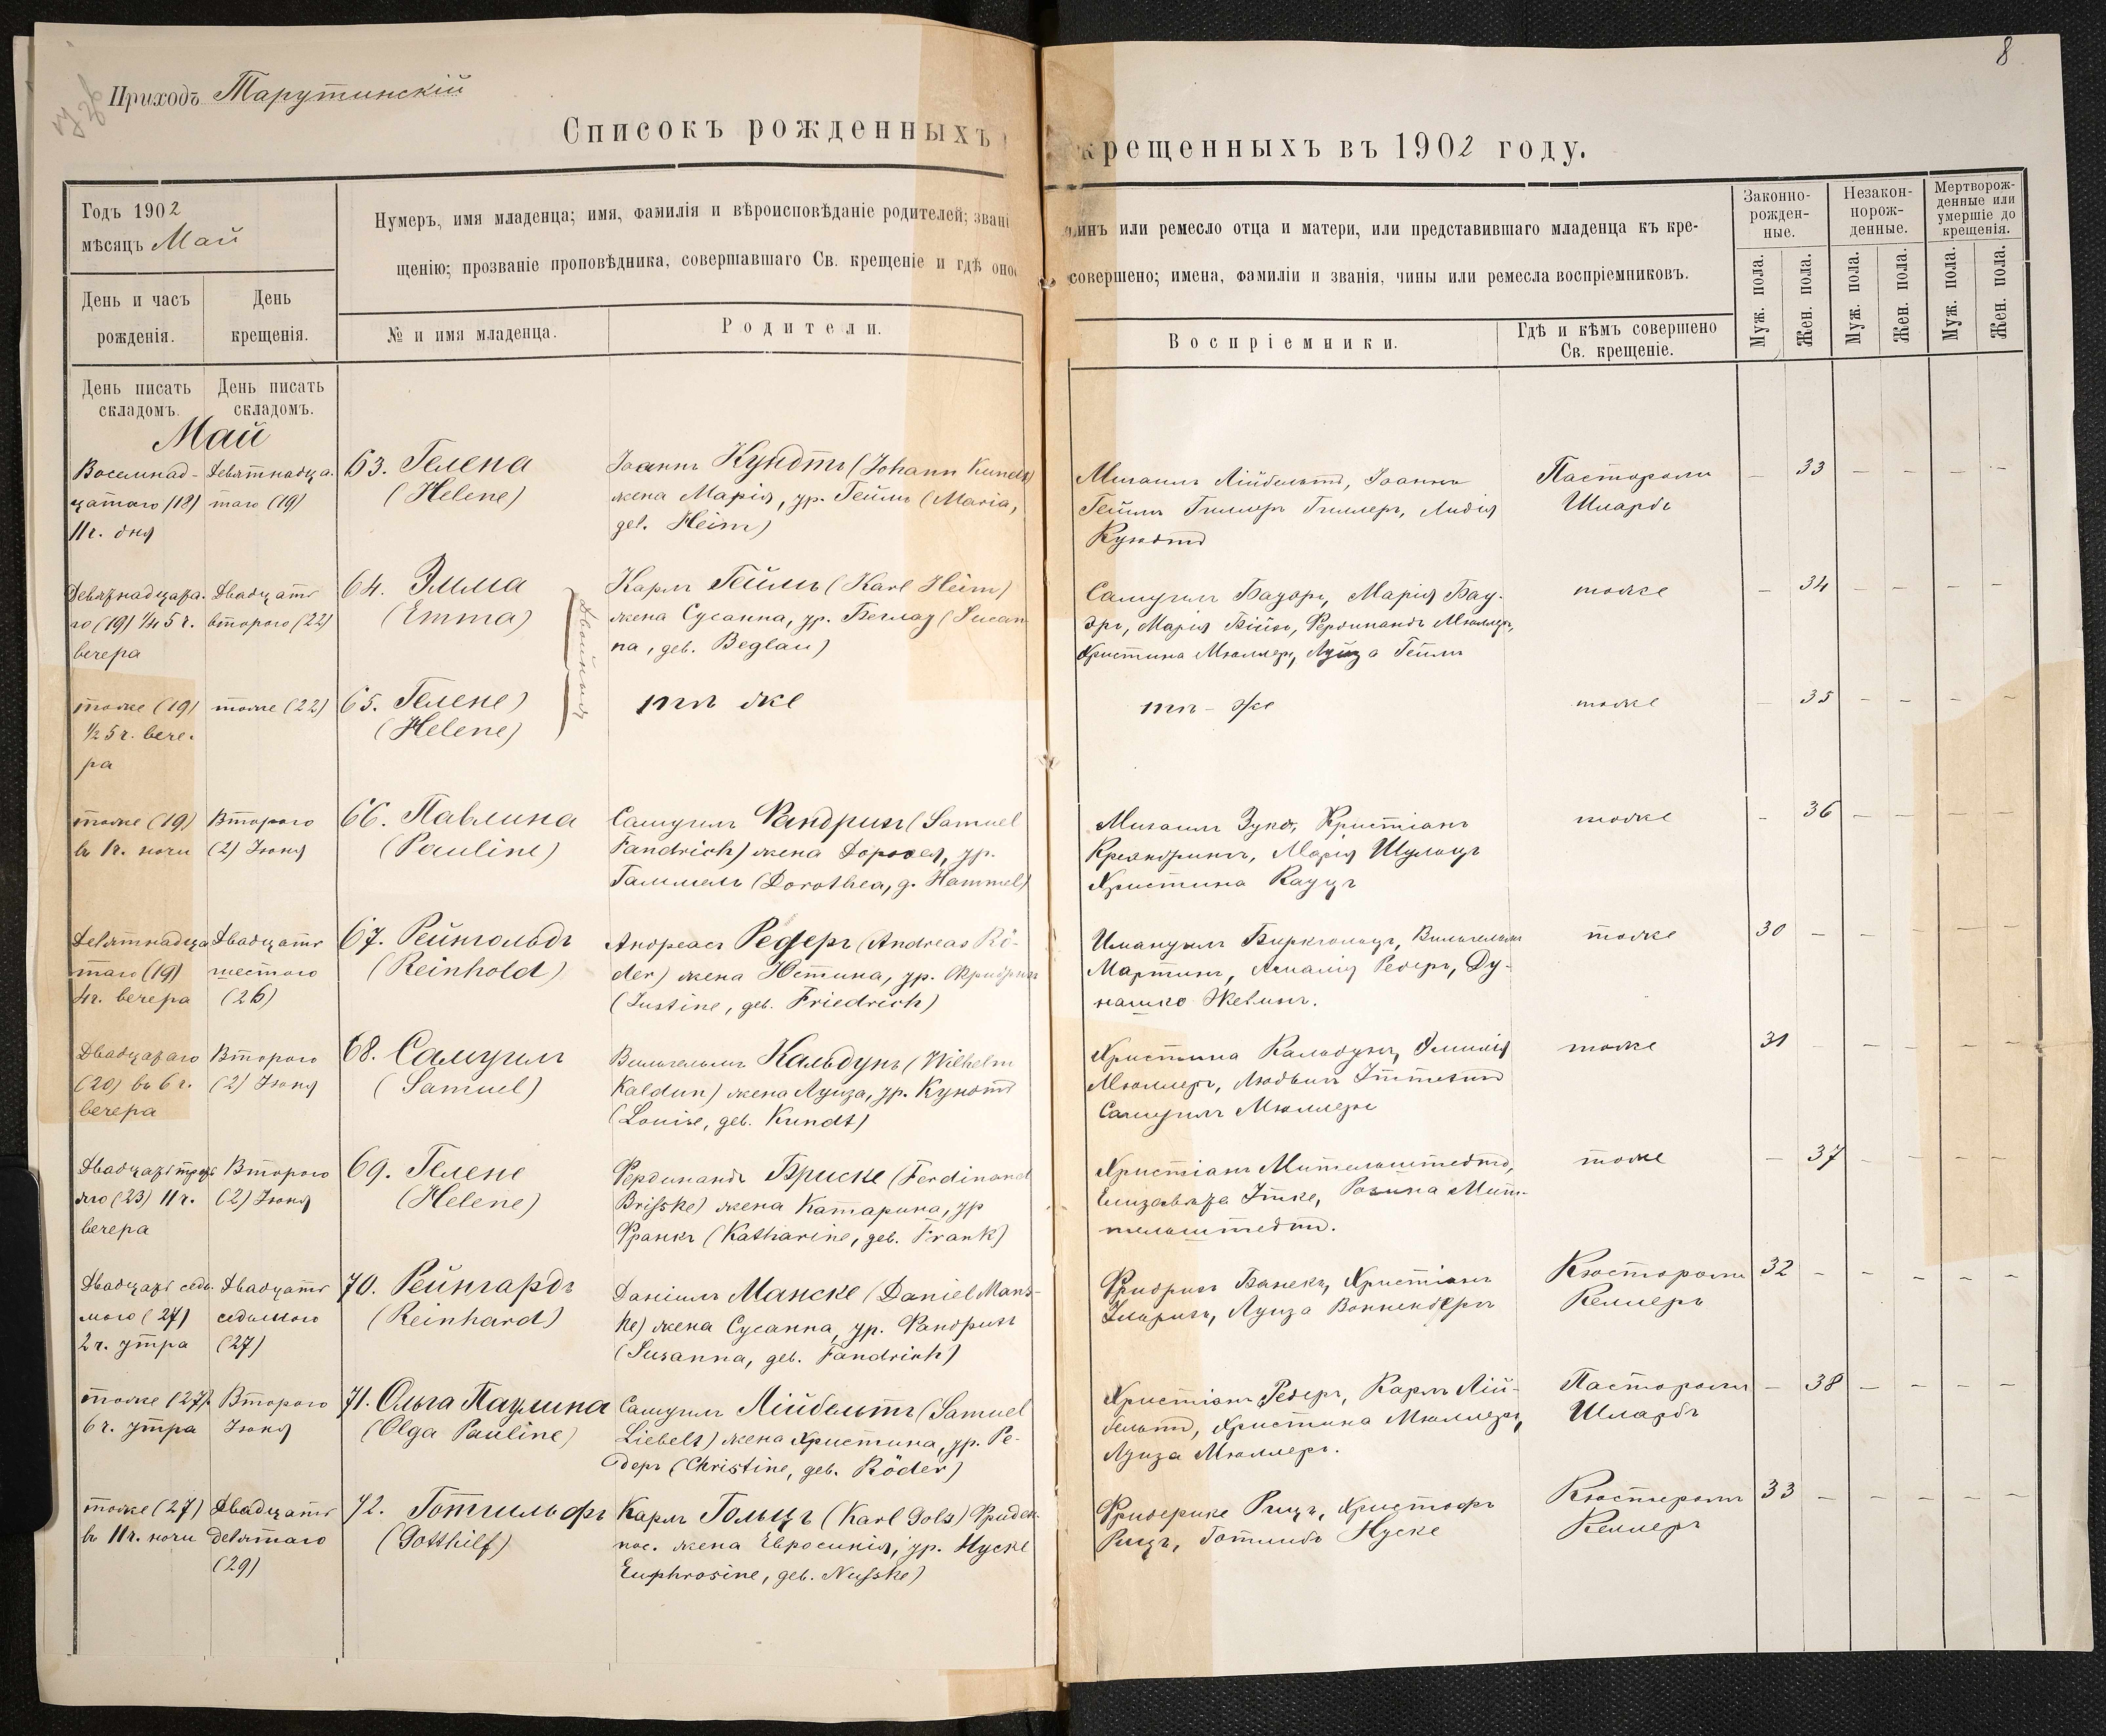 8
Приходъ Тарутинскій
Списокъ рожденныхъ крещенныхъ въ 1902 году.
Годъ 1902
мѣсяцъ Май
Нумеръ, имя младенца; имя, фамилія и вѣроисповѣданіе родителей; звані
чинъ или ремесло отца и матери, или представившаго младенца къ кре-
щенію; прозваніе проповѣдника, совершавшаго Св. крещеніе и гдѣ оно
совершено; имена, фамиліи и званія, чины или ремесла воспріемниковъ.
Законно-
рожден-
ные.
Незакон-
норож-
денные.
Мертворож-
денные или
умершіе до
крещенія.
День и часъ
рожденія.
День
крещенія.
№ и имя младенца.
Родители.
Воспріемники.
Гдѣ и кѣмъ совершено
Св. крещеніе.
Муж. пола.
Жен. пола.
Муж. пола.
Жен. пола.
Муж. пола.
Жен. пола.
День писать
складомъ.
День писать
складомъ.
Май
Восемнад-
цатаго (18)
11 ч. дня
Девятнадца-
таго (19)
63. Гелена
(Helene)
Іоаннъ Кундтъ (Johann Kundt)
жена Марія, ур. Геймъ (Maria,
geb. Heim)
Михаилъ Лійбельтъ, Іоаннъ
Геймъ Гиллеръ, Лидія
Кундтъ
Пасторомъ
Шлардъ
— 33 — — — —
Девятнадцата-
го (19) 1/4 5 ч.
вечера
Двадцать
второго (22)
64. Эмма
(Emma)
Двойники
Карлъ Геймъ (Karl Heim)
жена Сусанна, ур. Беглау (Susan
na, geb. Beglau)
Самуилъ Бауэръ, Марія Бау-
эръ, Марія Фердинандъ Мюллеръ,
Христина Мюллеръ, Луиза Геймъ
тоже
— 34 — — — —
тоже (19)
1/2 5 ч. вече-
ра
тоже (22)
65. Гелене
(Helene)
тѣ же
тѣ-же
тоже
— 35 — — — —
тоже (19)
въ 1 ч. ночи
Второго
(2) Іюня
66. Павлина
(Pauline)
Самуилъ Фандрихъ (Samuel
Fandrich) жена Доротея, ур.
Гаммель (Dorothea, g. Hammel)
Михаилъ Христіанъ
Марія Шульцъ
Христина Кауцъ
тоже
— 36 — — — —
Девятнадца
таго (19)
4 ч. вечера
Двадцать
шестого
(26)
67. Рейнгольдъ
(Reinhold)
Андреасъ Редеръ (Andreas Rö-
der) жена Юстина, ур. Фридрихъ
(Justine, geb. Friedrich)
Имануилъ Биркгольцъ, Вильгельмъ
Мартинъ, Амалія Редеръ,
тоже
30 — — — — —
Двадцатаго
(20) въ 6 ч.
вечера
Второго
(2) Іюня
68. Самуилъ
(Samuel)
Вильгельмъ Кальдунъ (Wilhelm
Kaldun) жена Луиза, ур. Кундтъ
(Louise, geb. Kundt)
Христина Кальдунъ, Эмилія
Мюллеръ, Людвигъ
Самуилъ Мюллеръ
тоже
31 — — — — —
Двадцать треть
яго (23) 11 ч.
вечера
Второго
(2) Іюня
69. Гелене
(Helene)
Фердинандъ Бриске (Ferdinand
Brisske) жена Катарина, ур
Франкъ (Katharine, geb. Frank)
Христіанъ Мительштедтъ,
Елизавета Розина Мит-
тельштедтъ.
тоже
— 37 — — — —
Двадцать седь-
мого (27)
2 ч. утра
Двадцать
седьмого
(27)
70. Рейнгардъ
(Reinhard)
Даніилъ Манске (Daniel Mans-
ke) жена Сусанна, ур. Фандрихъ
(Susanna, geb. Fandrich)
Фридрихъ Христіанъ
Луиза
Кюстеромъ
Келлеръ
32 — — — — —
тоже (27)
6 ч. утра
Второго
Іюня
71. Ольга Паулина
(Olga Pauline)
Самуилъ Лійбельтъ (Samuel
Liebelt) жена Христина, ур. Ре-
деръ (Christine, geb. Röder)
Христіанъ Редеръ, Карлъ Лій-
бельтъ, Христина Мюллеръ,
Луиза Мюллеръ.
Пасторомъ
Шлардъ
— 38 — — — —
тоже (27)
въ 11 ч. ночи
Двадцать
девятаго
(29)
72. Готгильфъ
(Gotthilf)
Карлъ Гольцъ (Karl Golz) Фриден
пос. жена Евросинія, ур. Нуске
Euphrosine, geb. Nusske)
Фридерике Рицъ, Христофъ
Рицъ, Готлибъ Нуске
Кюстеромъ
Келлеръ
33 — — — — —